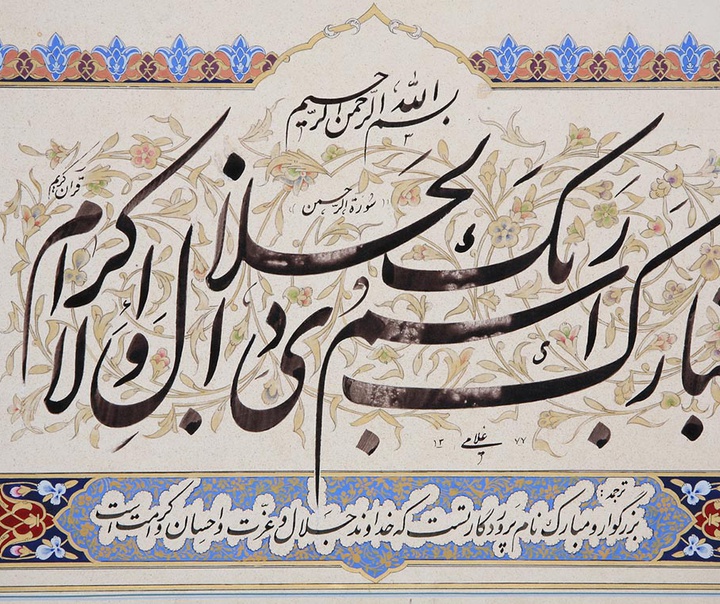 بسم الله الرحمن الرحیم
قرآن کریم
((سورة الرحمن))
تبارک اسم ربک ذی الجلال و الاکرام
۱۳ غلامی ۷۷
ترجمه:
بزرگوار و مبارک نام پروردگار تست که خداوند جلال و عزت و احسان و کرامت است